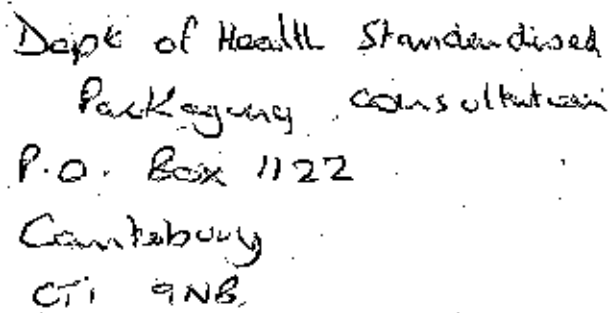 Dept of Health Standardised
Packaging consultation
P.O. Box 1122
Canterbury
CT1 9NB